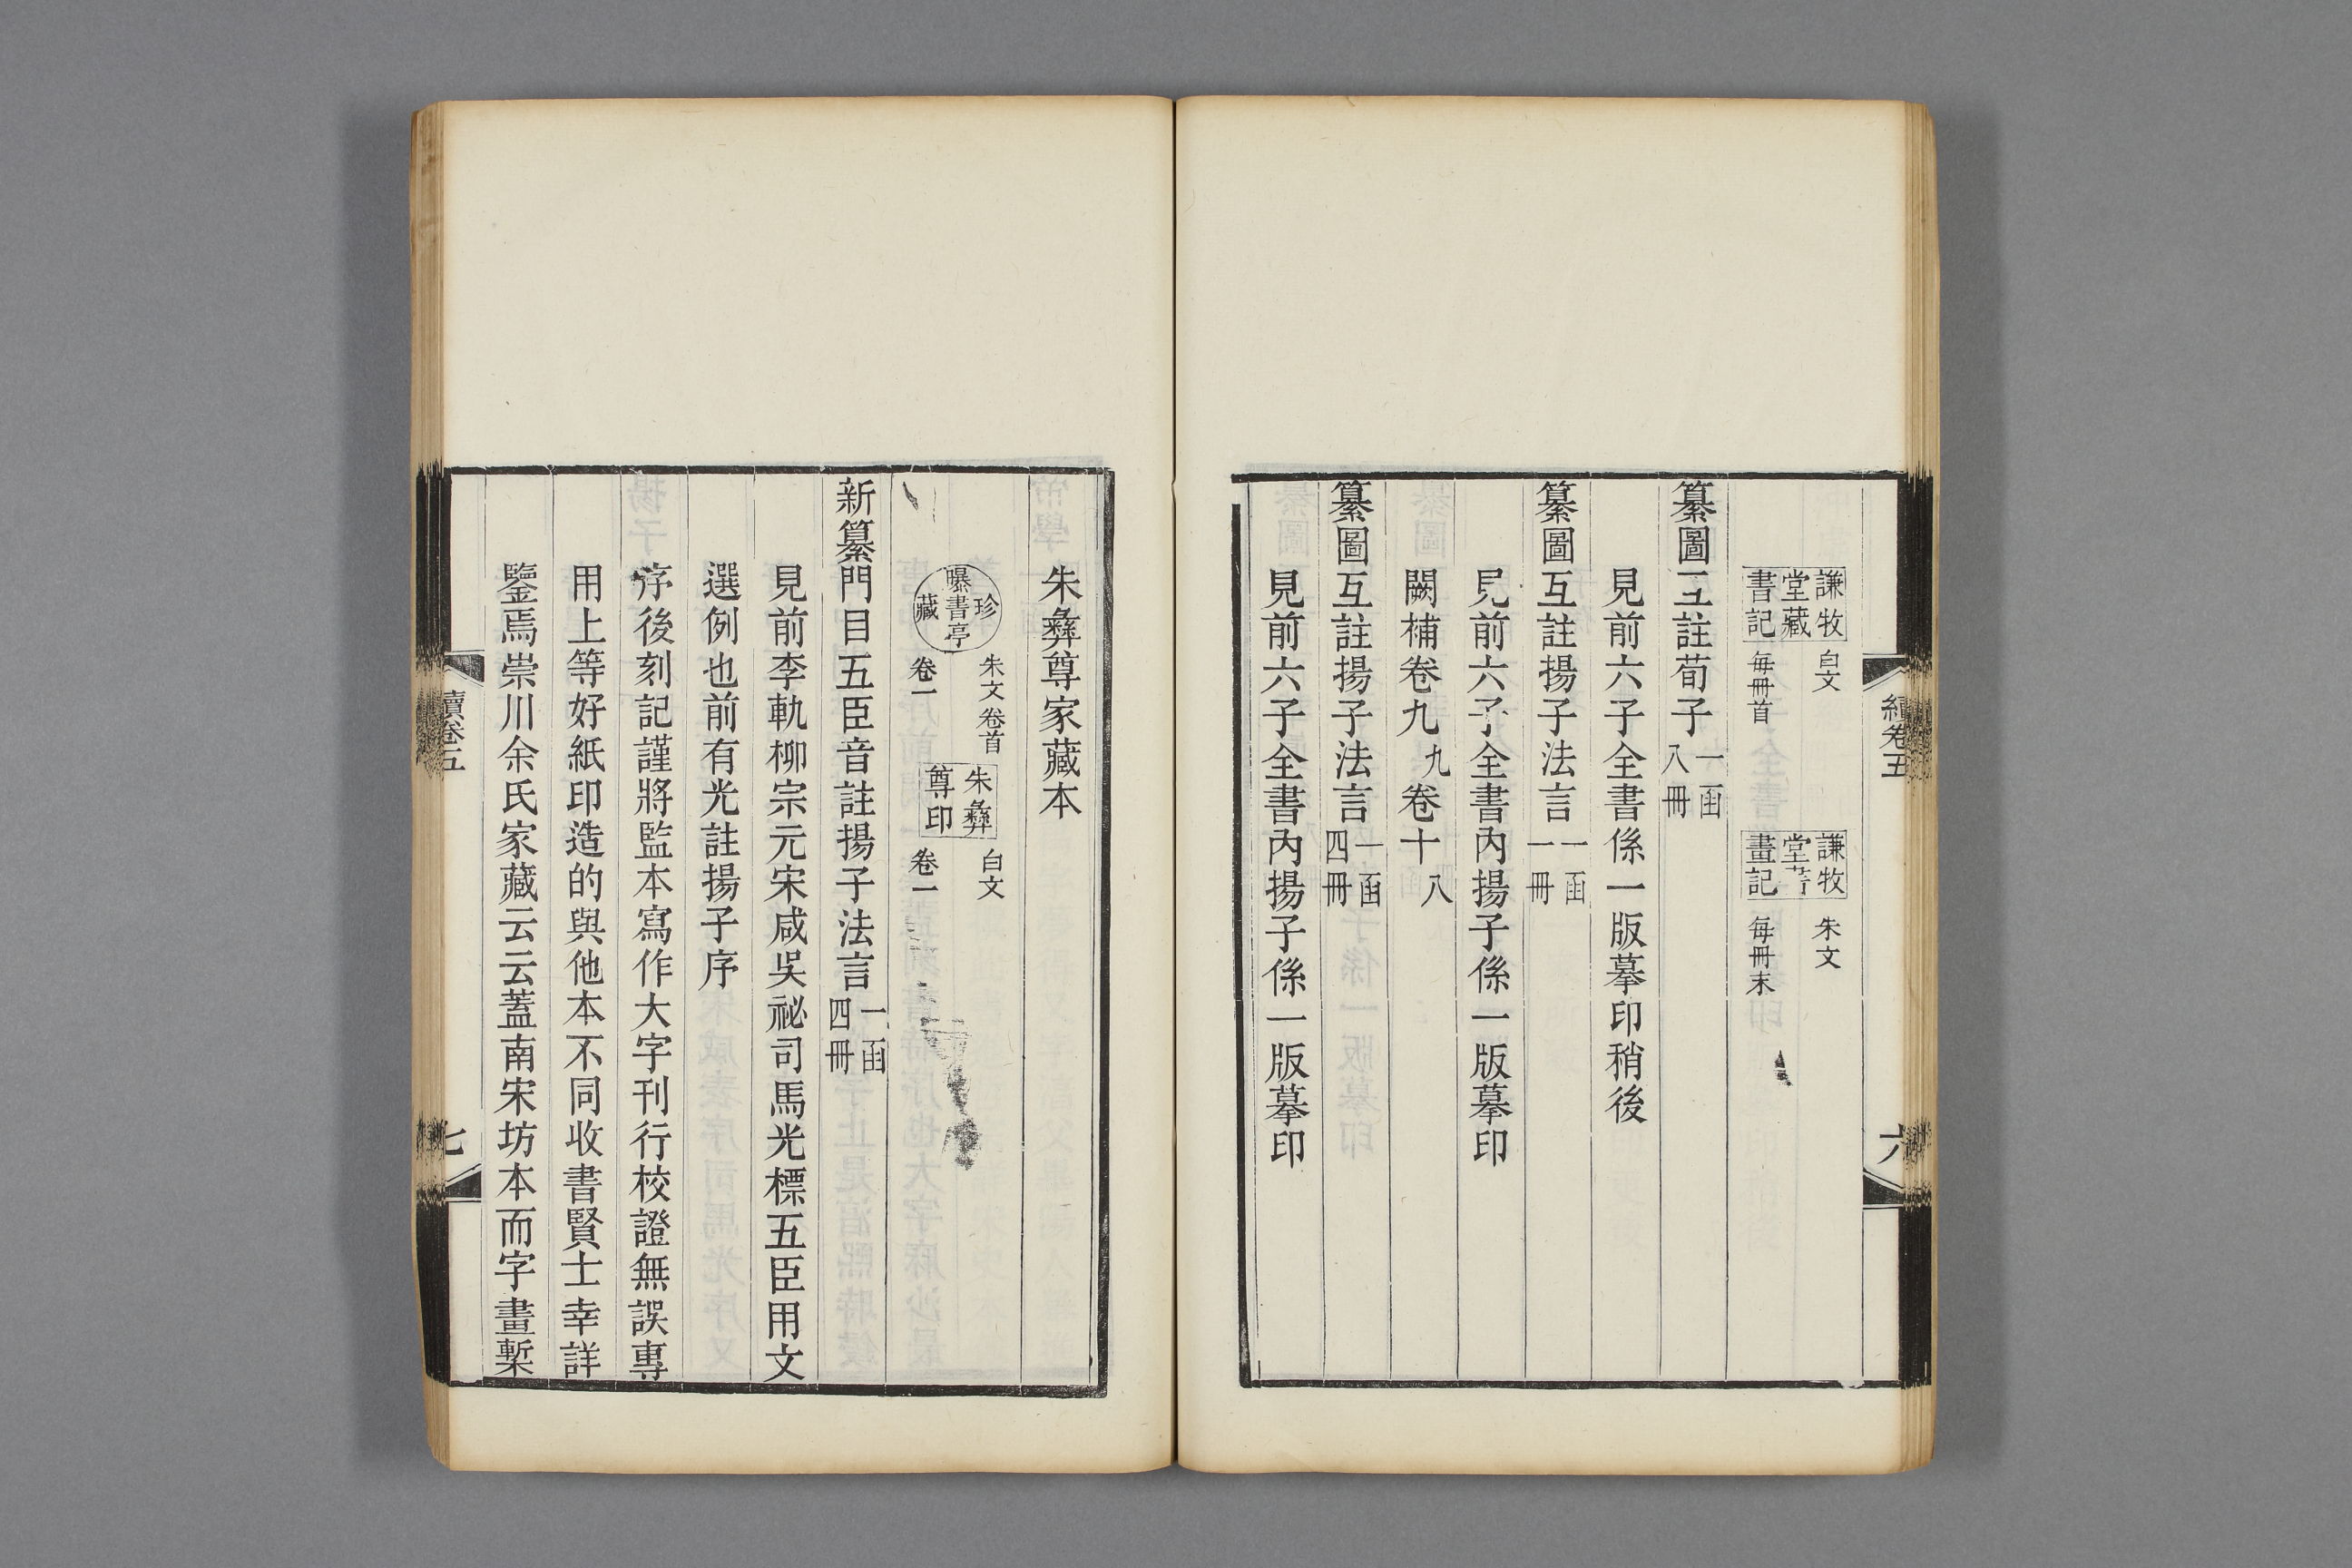 續卷五
六
謙牧堂藏書記 白文 每冊首 謙牧堂書畫記 朱文 每冊末
纂圖互註荀子 一函八冊
見前六子全書係一版摹印稍後
纂圖互註揚子法言 一函一冊
見前六子全書內揚子係一版摹印
闕補卷九 九 卷十 八
纂圖互註揚子法言 一函四冊
見前六子全書內揚子係一版摹印
朱彝尊家藏本
曝書亭珍藏 朱文 卷首 卷一 朱彝尊印 白文 卷一
新纂門目五臣音註揚子法言 一函四冊
見前李軌柳宗元宋咸吳祕司馬光標五臣用文
選例也前有光註揚子序
序後刻記謹將監本寫作大字刊行校證無誤專
用上等好紙印造的與他本不同收書賢士幸詳
鑒焉崇川余氏家藏云云蓋南宋坊本而字畫槧
續卷五
七